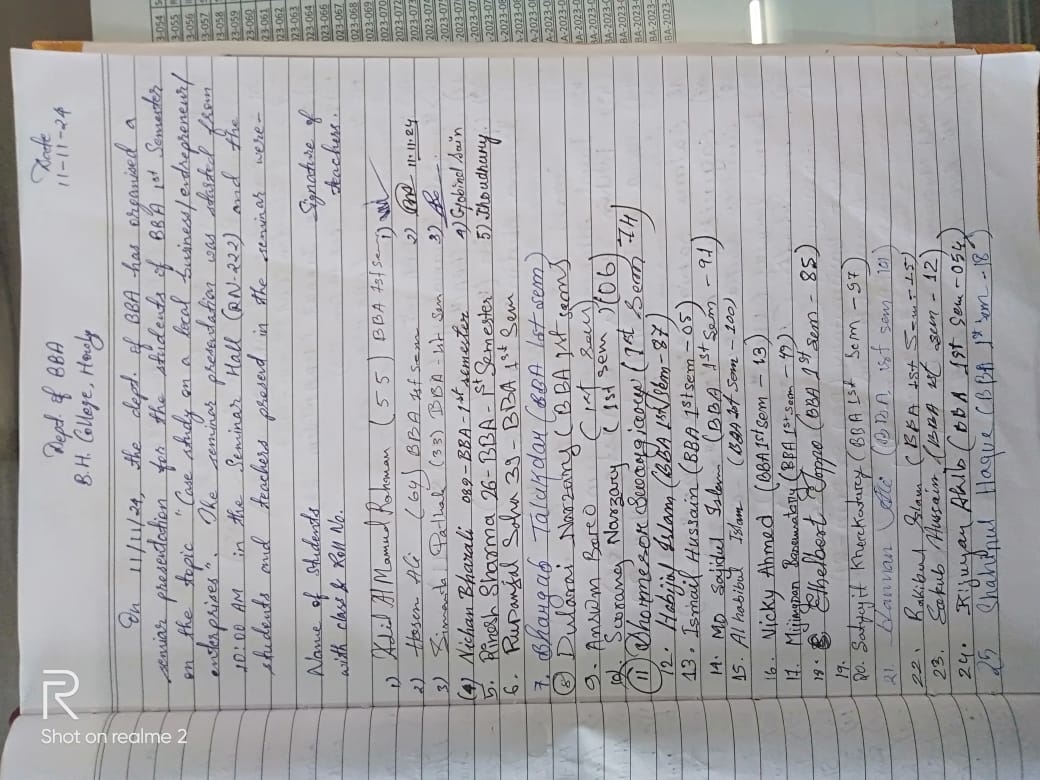 Date
11-11-24
Dept. of BBA
B.H. College, Howly
On 11/11/24, the dept. of BBA has organised a
seminar presentation for the students of BBA 1st Semester
on the topic "Case study on a local business/entrepreneur/
enterprises". The seminar presentation was started from
10:00 AM in the Seminar Hall (RN-222) and the
students and teachers present in the seminar were-
Name of students
with class & Roll No.
Signature of
teachers.
1) Adil Al Mamud Rahman (55) BBA 1st sem
2) Hasem Ali (64) BBA 1st sem
3) Simanta Pathak (33) BBA 1st Sem
(4) Nichan Bharali 089-BBA-1st semester
5. Pinesh Sharma 26-BBA-1st Semester
6. Rupanjal Solu 39-BBA 1st Sem
7. Bhangab Talukdar (BBA 1st sem)
(8) Dularai Narzary (BBA 1st sem)
9. Answm Baro (1st sem)
10 Swrang Narzary (1st sem) (06)
(11) Dhormeswr Swargiary (1st Sem 74)
12. Habijul Islam (BBA 1st sem-87)
13. Ismail Hussain (BBA 1st sem-05)
14. MD Sajidul Islam (BBA 1st Sem - 91)
15. Al habibul Islam (BBA 1st Sem - 100)
16. Vicky Ahmed (BBA 1st sem - 13)
17. Mijingnan Basumatary (BBA 1st sem - 42)
18. Ethelbert Toppo (BBA 1st Sem - 85)
19.
20. Satyajit Kherkatary (BBA 1st Sem - 97)
21. (BBA 1st sem 101)
22. Rakibul Islam (BBA 1st Sem - 25)
23. Sakib Hussain (BBA 1st sem - 12)
24. Rijuyan Ahib (BBA 1st Sem - 054)
25 Shahinul Haque (BBA 1st sem - 18)
1)
2) 11.11.24
3)
4) Grobind Sain
5) Choudhury.
R
Shot on realme 2